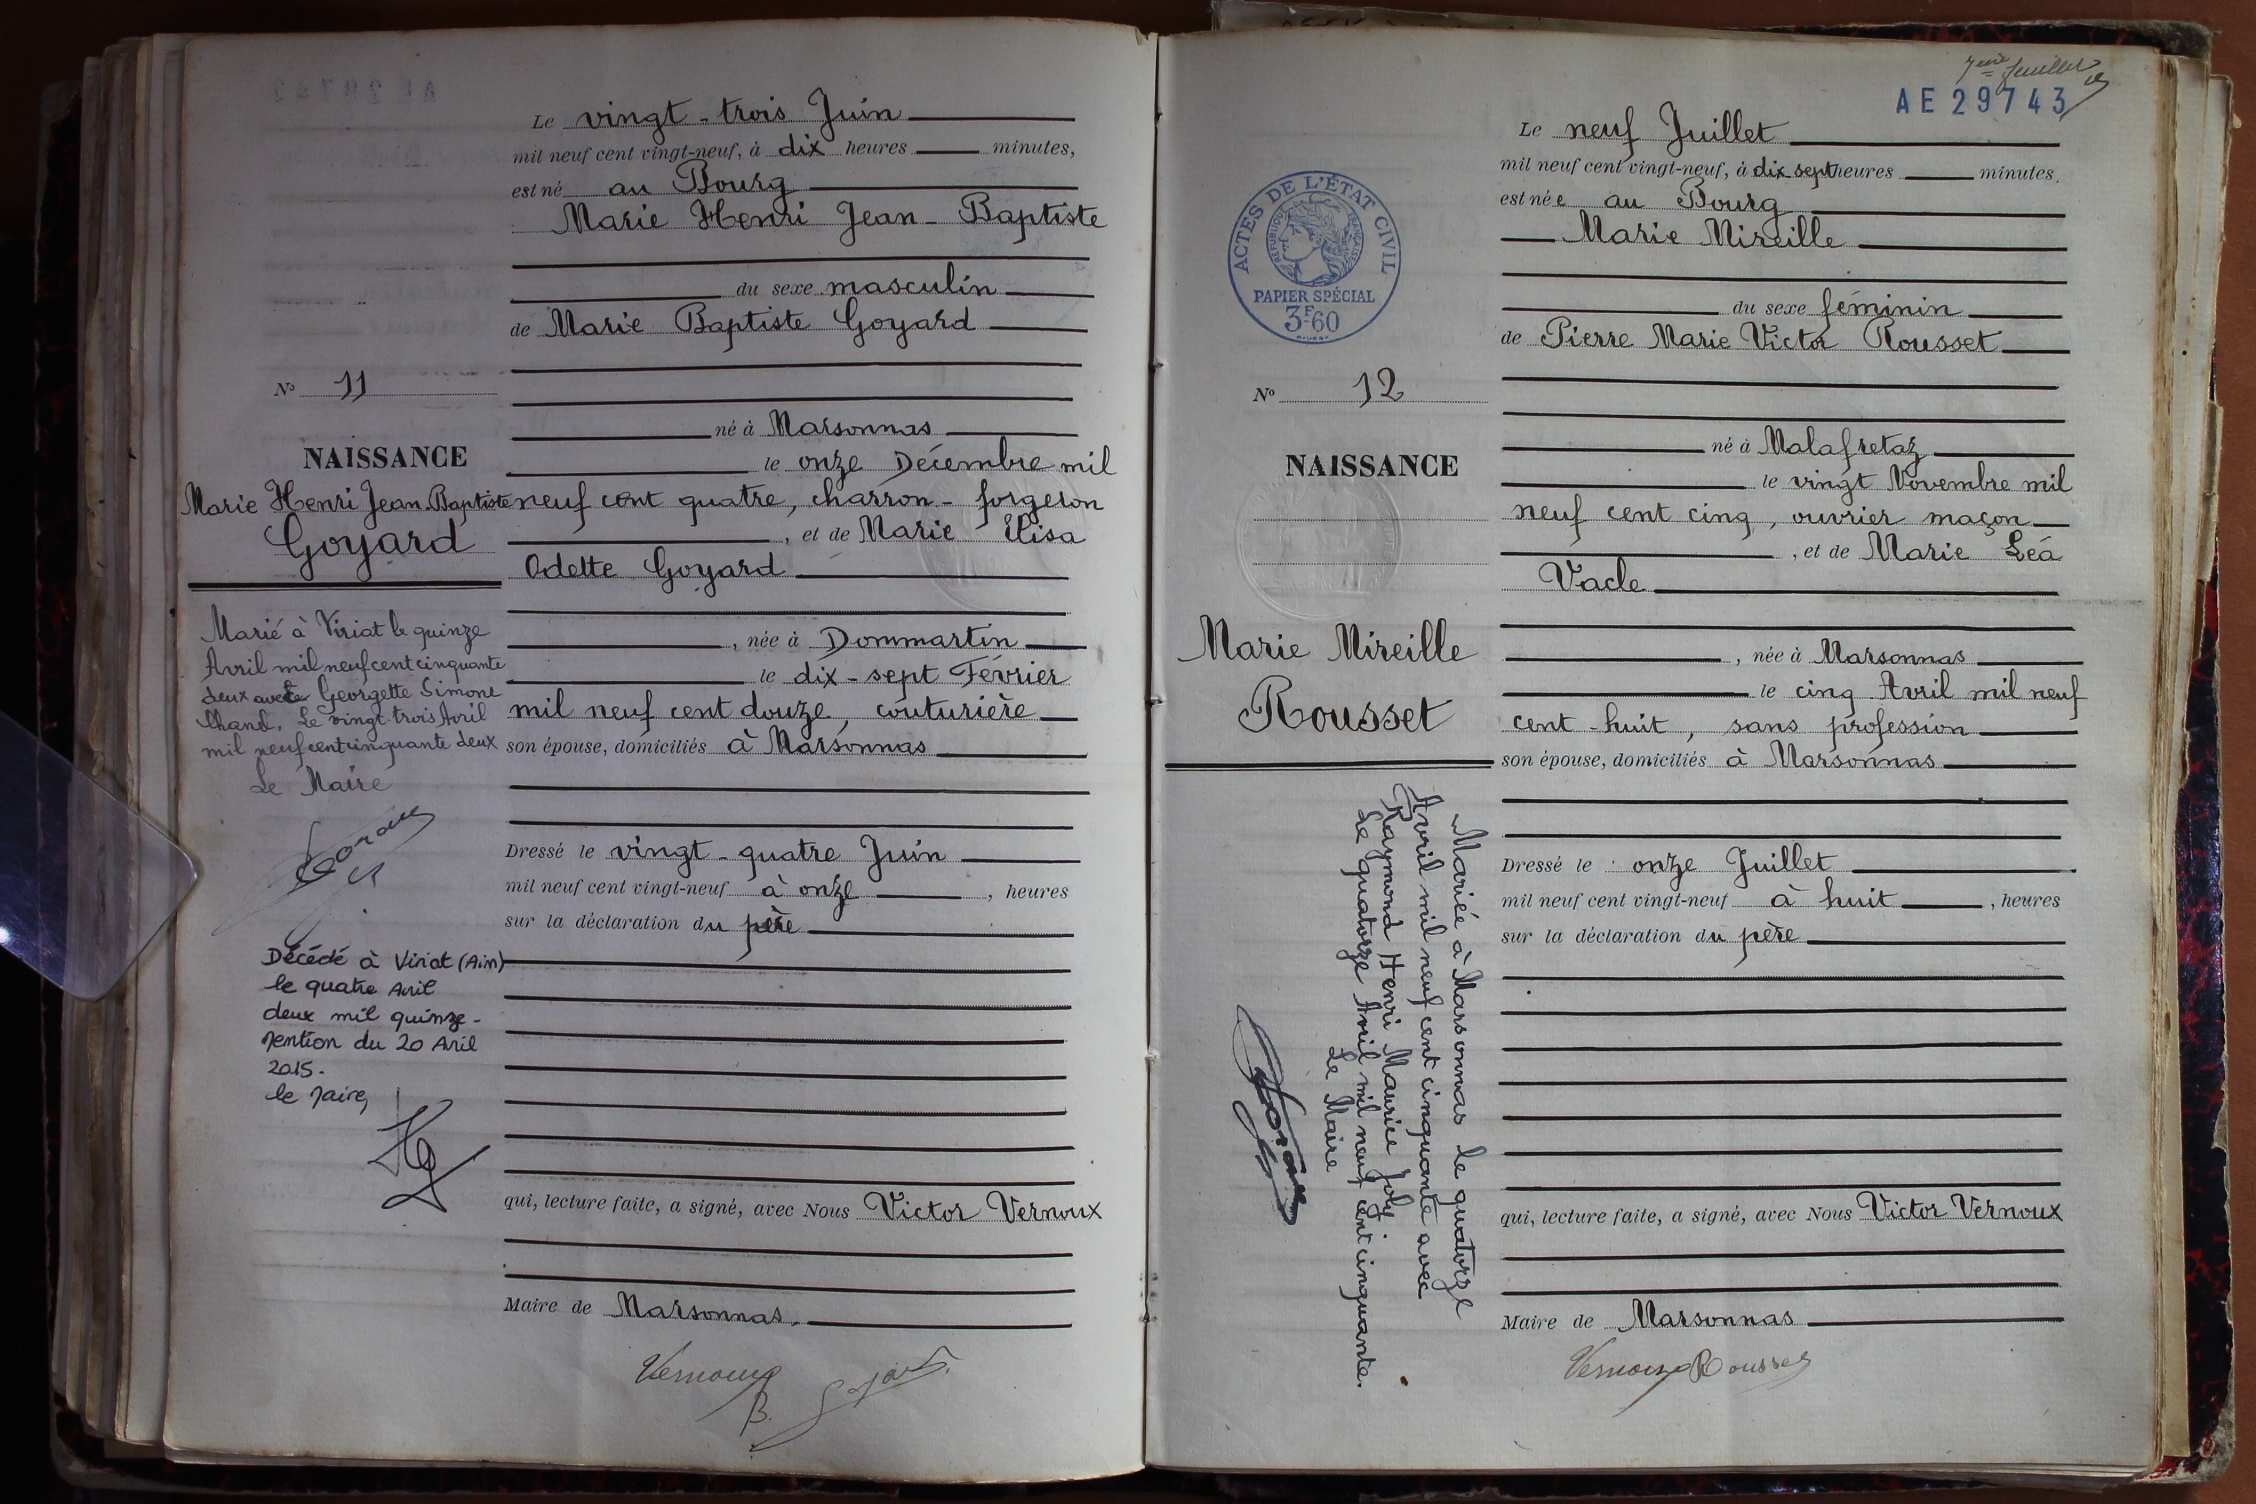 Le vingt-trois Juin
mil neuf cent vingt-neuf, à dix heures minutes,
est né au Bourg
Marie Henri Jean-Baptiste
du sexe masculin
de Marie Baptiste Goyard
né à Marsonnas
le onze Décembre mil
neuf cent quatre, charron-forgeron
, et de Marie Elisa
Odette Goyard
, née à Dommartin
le dix-sept Février
mil neuf cent douze, couturière
son épouse, domiciliés à Marsonnas
Dressé le vingt-quatre Juin
mil neuf cent vingt-neuf à onze , heures
sur la déclaration du père
qui, lecture faite, a signé, avec Nous Victor Vernoux
Maire de Marsonnas.
Vernoux
B. Goyard
No 11
NAISSANCE
Marie Henri Jean-Baptiste
Goyard
Marié à Viriat le quinze
Avril mil neuf cent cinquante
deux avec Georgette Simone
Le vingt trois Avril
mil neuf cent cinquante deux
Le Maire
Décédé à Viriat (Ain)
le quatre Avril
deux mil quinze -
Mention du 20 Avril
2015.
le Maire,
7ème feuillet
AE 29743
Le neuf Juillet
mil neuf cent vingt-neuf, à dix-sept heures minutes.
est née au Bourg
Marie Mireille
du sexe féminin
de Pierre Marie Victor Rousset
né à Malafretaz
le vingt Novembre mil
neuf cent cinq, ouvrier maçon
, et de Marie Léa
Vacle
, née à Marsonnas
le cinq Avril mil neuf
cent-huit, sans profession
son épouse, domiciliés à Marsonnas
Dressé le onze Juillet
mil neuf cent vingt-neuf à huit , heures
sur la déclaration du père
qui, lecture faite, a signé, avec Nous Victor Vernoux
Maire de Marsonnas
Vernoux Rousset
ACTES DE L'ÉTAT CIVIL
RÉPUBLIQUE FRANÇAISE
PAPIER SPÉCIAL
3F60
No 12
NAISSANCE
Marie Mireille
Rousset
Mariée à Marsonnas le quatorze
Avril mil neuf cent cinquante avec
Raymond Henri Maurice Joly
Le quatorze Avril mil neuf cent cinquante.
Le Maire